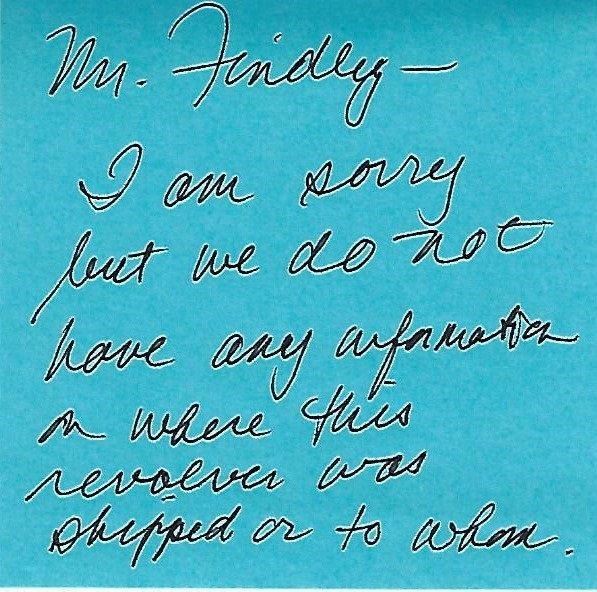 Mr. Findley —
I am sorry
but we do not
have any information
on where this
revolver was
shipped or to whom.